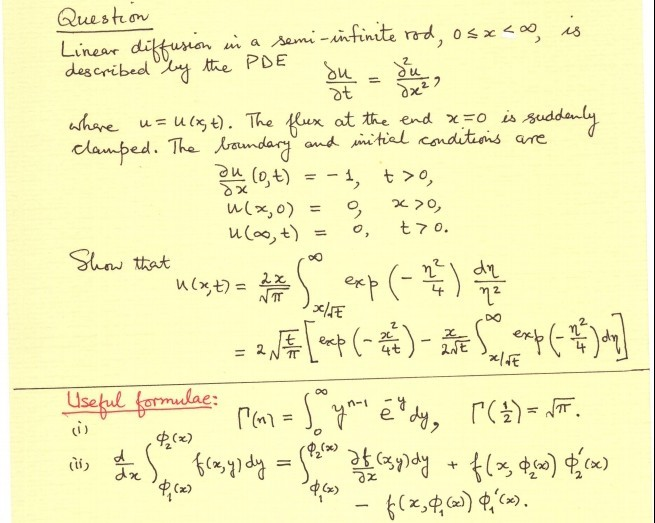 Question
Linear diffusion in a semi-infinite rod, 0 ≤ x < ∞, is
described by the PDE
∂u/∂t = ∂²u/∂x²,
where u = u(x,t). The flux at the end x=0 is suddenly
clamped. The boundary and initial conditions are
∂u/∂x (0,t) = -1, t > 0,
u(x,0) = 0, x > 0,
u(∞,t) = 0, t > 0.
Show that
u(x,t) = 2x/√π ∫_{x/√t}^{∞} exp(-η²/4) dη/η²
= 2√(t/π) [exp(-x²/4t) - x/2√t ∫_{x/√t}^{∞} exp(-η²/4) dη]
Useful formulae:
(i) Γ(n) = ∫_0^∞ y^{n-1} e^{-y} dy, Γ(1/2) = √π.
(ii) d/dx ∫_{ϕ₁(x)}^{ϕ₂(x)} f(x,y) dy = ∫_{ϕ₁(x)}^{ϕ₂(x)} ∂f/∂x (x,y) dy + f(x, ϕ₂(x)) ϕ₂'(x)
- f(x, ϕ₁(x)) ϕ₁'(x).